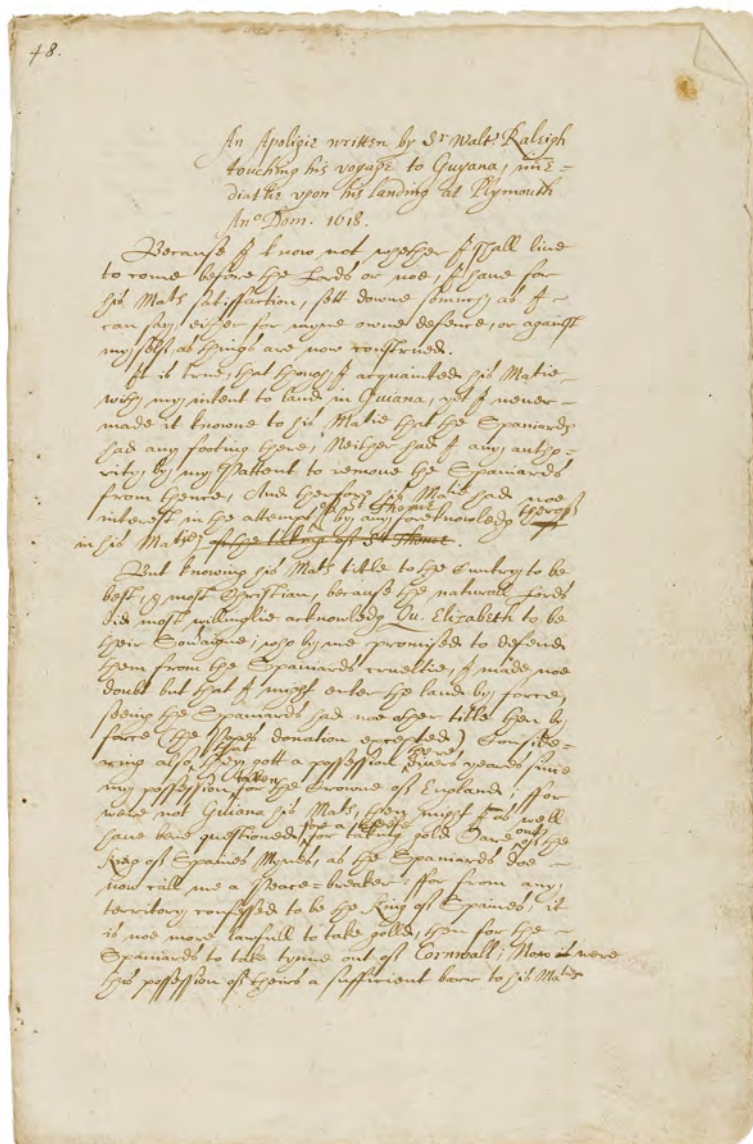 48.
An Apoligie written by Sr Walt. Raleigh
touching his voyage to Guyana, imẽ=
diatlie vpon his landing at Plymouth
Ano Dom. 1618.
Because I know not whether I shall liue
to come before the Lords or noe, I haue for
his Mats satisfaction, sett downe somuch as I
can say, either for myne owne defence, or against
my self, as things are now construed.
It is true, that though I acquainted his Matie
with my intent to land in Guiana, yet I neuer
made it knowne to his Matie that the Spaniards
had any footing there; Neither had I any autho-
rity by my Pattent to remoue the Spaniards
from thence, And therfore his Matie had noe
interest in the attempt of St Thome by any foreknowledg therof
in his Matie of the taking of St Thome.
But knowing his Mats title to the Cuntry to be
best, & most Christian, because the naturall Lords
did most willinglie acknowledg Qu. Elizabeth to be
their Soũaigne; who by me promised to defend
them from the Spaniards crueltie, I made noe
doubt but that I might enter the land by force,
seeing the Spaniards had noe other title then by
force (the Popes donation excepted) Conside-
ring also that they gott a possession there divers yeares since
my possession taken for the Crowne of England; ffor
were not Guiana his Mats, then might I as well
haue bene questioned for a theefe for taking gold Oare out of the
King of Spaines Mynes, as the Spaniards doe
now call me a Peace=breaker; ffor from any
territory confessed to be the King of Spaines, it
is noe more lawfull to take gold, then for the
Spaniards to take tynne out of Cornwall; Now were
this possession of theirs a sufficient barr to his Mats